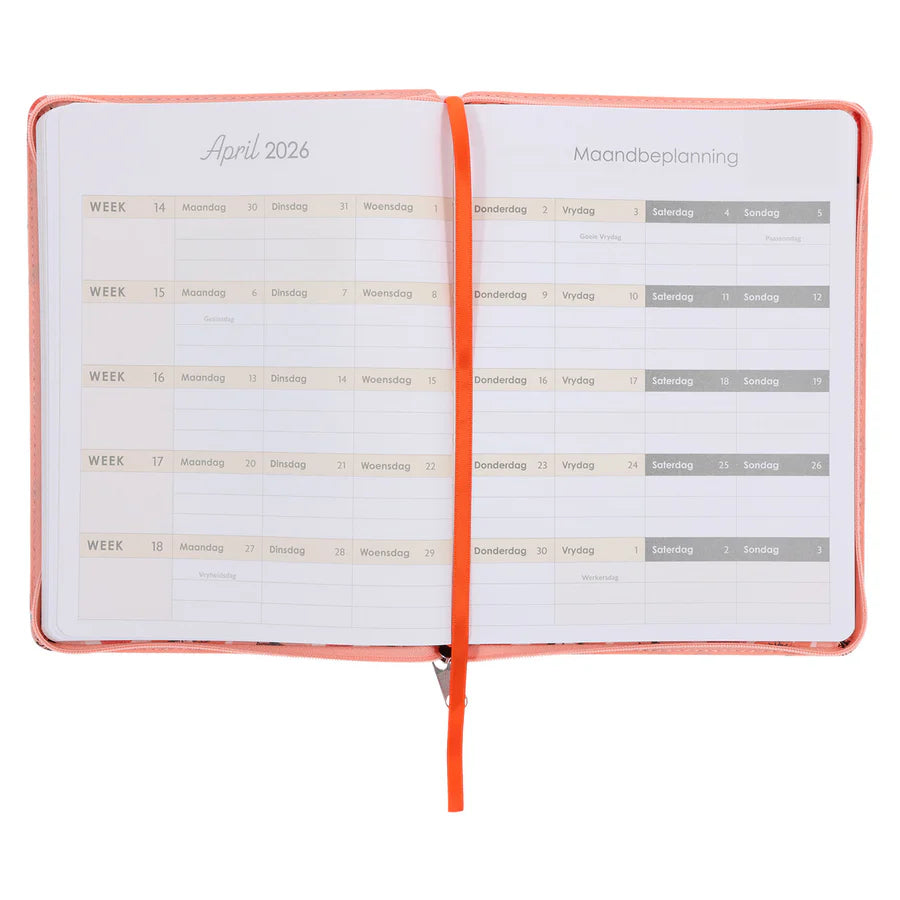 April 2026
Maandbeplanning
WEEK 14 Maandag 30 Dinsdag 31 Woensdag 1 Donderdag 2 Vrydag 3 Saterdag 4 Sondag 5
Goeie Vrydag Paassondag
WEEK 15 Maandag 6 Dinsdag 7 Woensdag 8 Donderdag 9 Vrydag 10 Saterdag 11 Sondag 12
Gesinsdag
WEEK 16 Maandag 13 Dinsdag 14 Woensdag 15 Donderdag 16 Vrydag 17 Saterdag 18 Sondag 19
WEEK 17 Maandag 20 Dinsdag 21 Woensdag 22 Donderdag 23 Vrydag 24 Saterdag 25 Sondag 26
WEEK 18 Maandag 27 Dinsdag 28 Woensdag 29 Donderdag 30 Vrydag 1 Saterdag 2 Sondag 3
Vryheidsdag Werkersdag